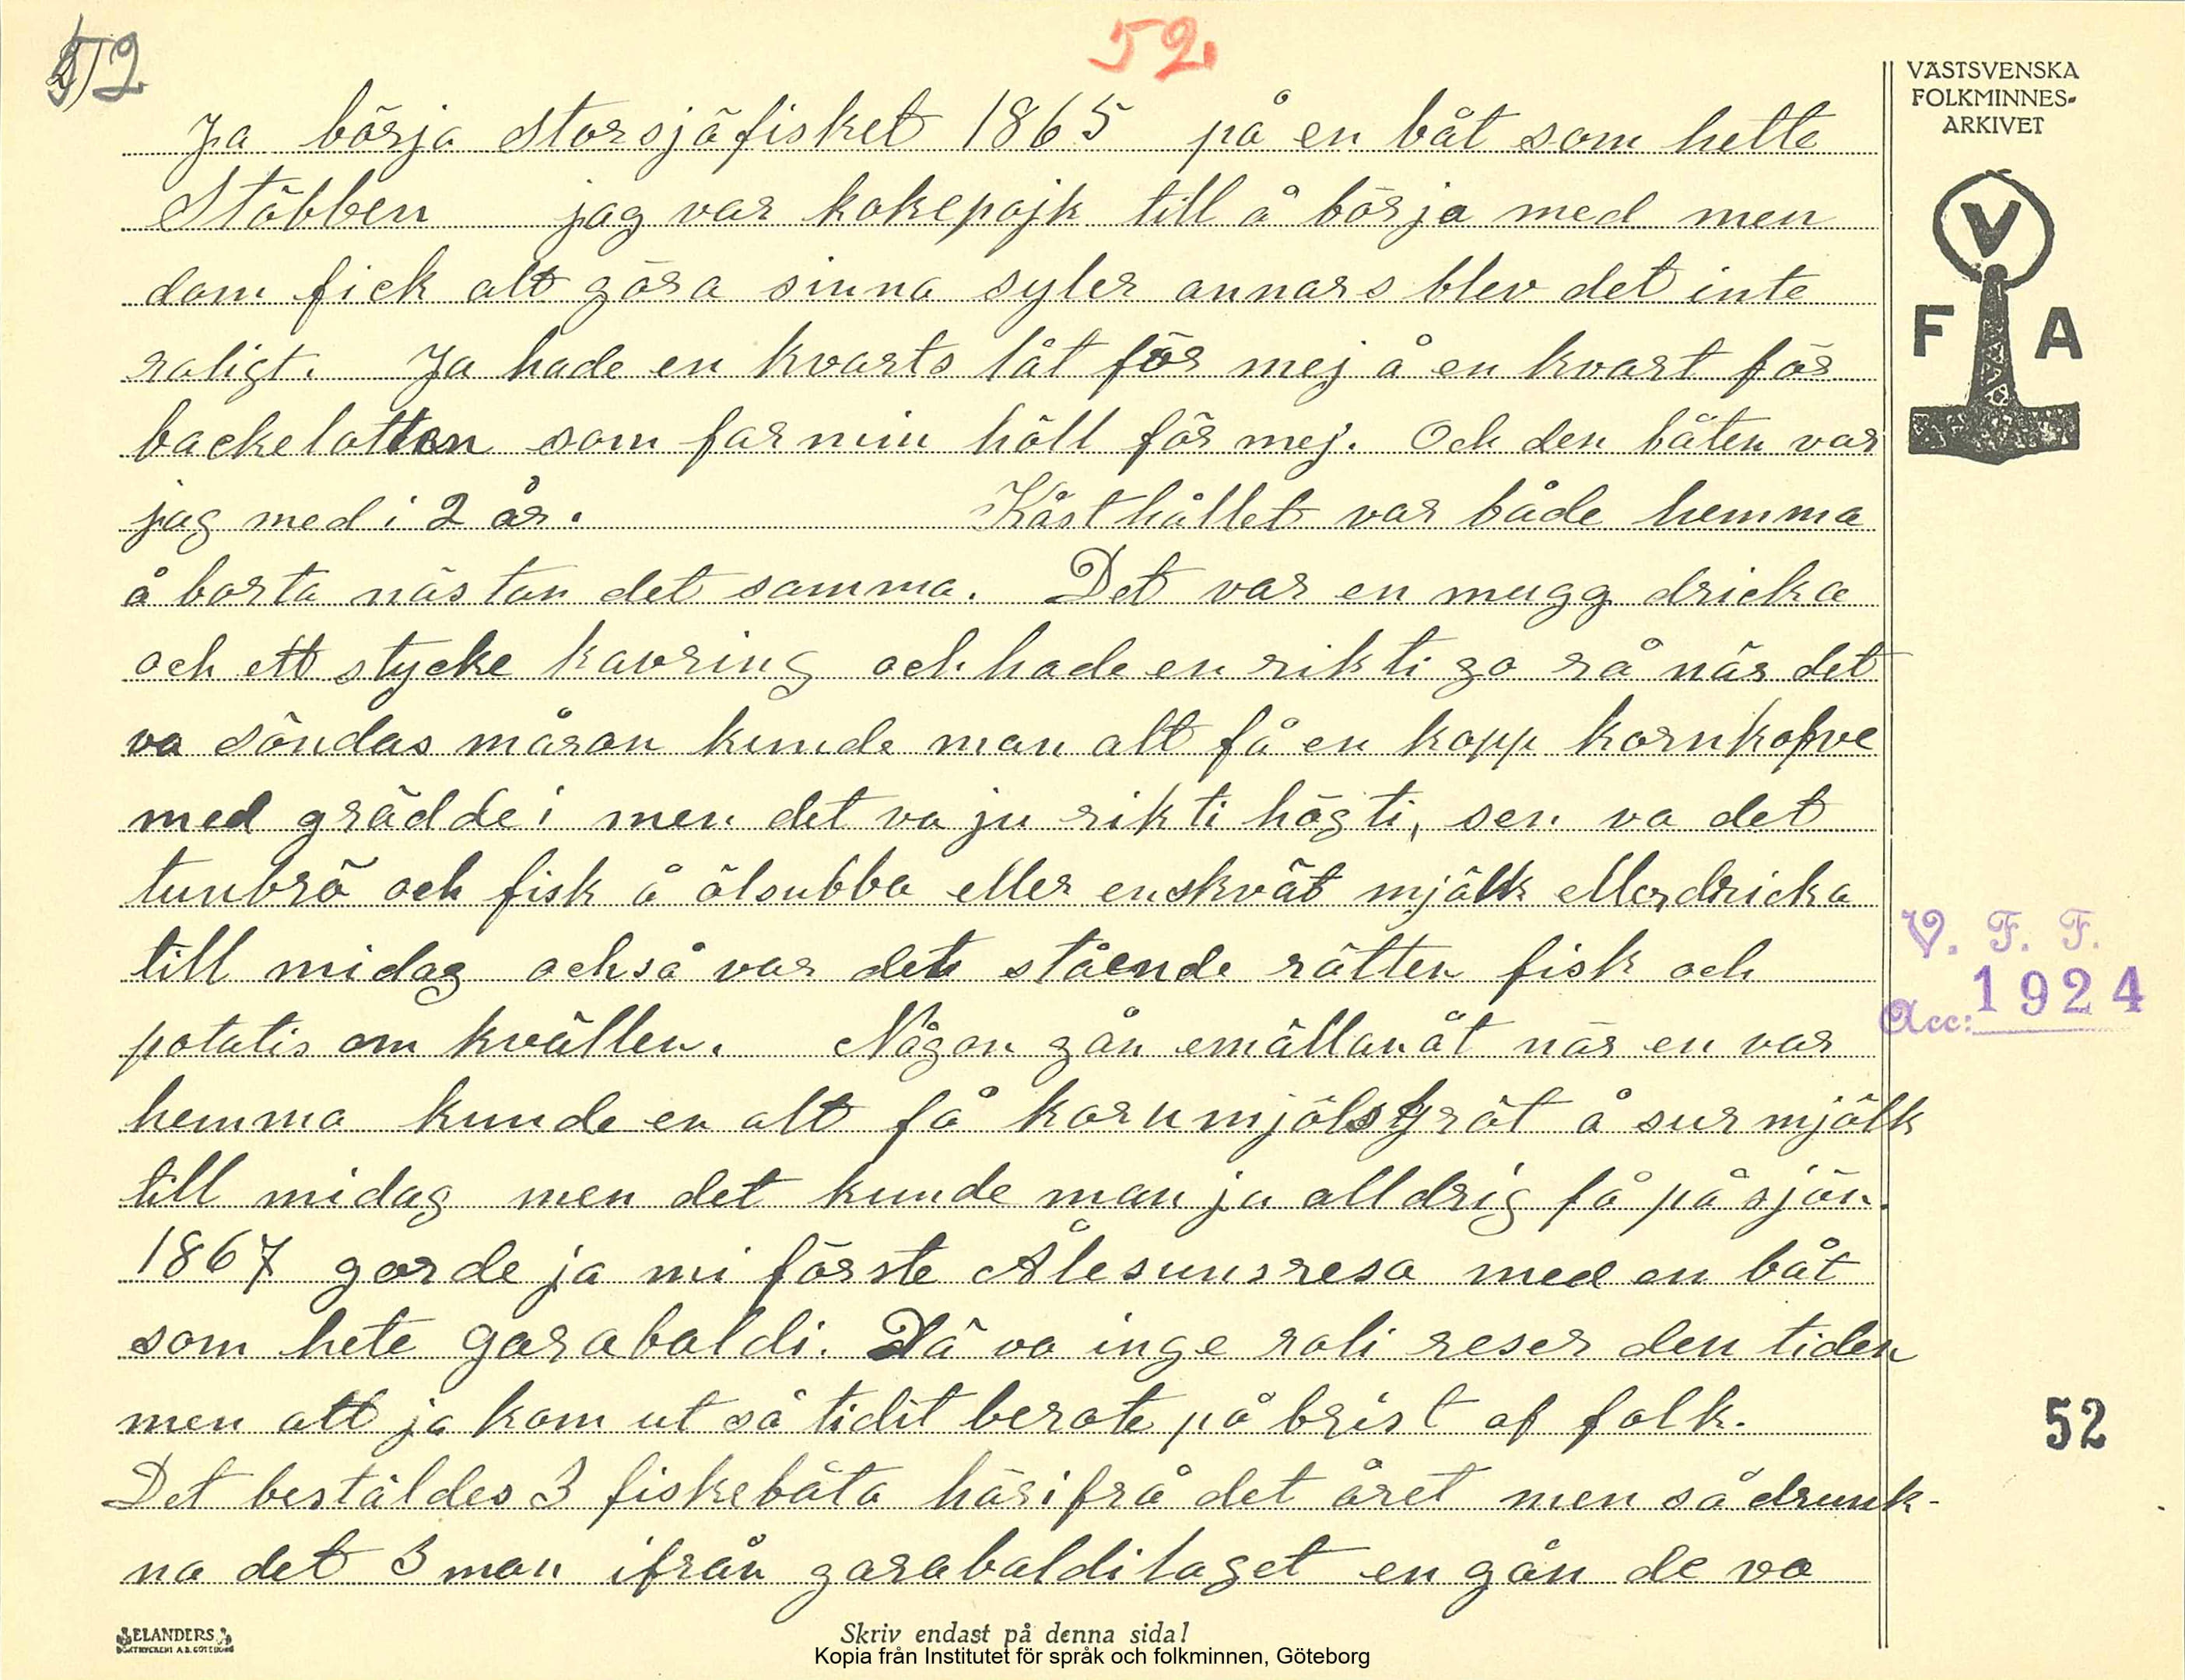 52
52.
VÄSTSVENSKA
FOLKMINNES-
ARKIVET
V
F A
Ja börja Storsjöfisket 1865 på en båt som hette
Stöbben jag var kokepojk till å börja med men
dom fick alt göra sinna syler annars blev det inte
roligt. Ja hade en kvarts låt för mej å en kvart för
backelotten som far min höll för mej. Och den båten var
jag med i 2 år. Kåsthållet var både hemma
å borta näs tan det samma. Det var en mugg dricka
och ett stycke kavring och hade en rikti go rå när det
va söndas måron kunde man alt få en kopp kornkofve
med grädde i men det va ju rikti högti, sen va det
tunbrö och fisk å ölsubba eller en skvät mjölk eller dricka
till midag också var det stående rätten fisk och
potatis om kvällen. Någon gån emällanåt när en var
hemma kunde en alt få kornmjölsgröt å sur mjölk
till midag men det kunde man ju alldrig få på sjön.
1867 gorde ja mi förste Ålesunsresa med en båt
som hete garabaldi. Dä va inge roli reser den tiden
men att ja kom ut så tidit berote på brist af folk.
Det beställdes 3 fiskebåta härifrå det året men så drunk-
na det 3 man ifrån garabaldilaget en gån de va
V. F. F.
Acc: 1924
52
ELANDERS
BOKTRYCKERI A.B. GÖTEBORG
Skriv endast på denna sida!
Kopia från Institutet för språk och folkminnen, Göteborg